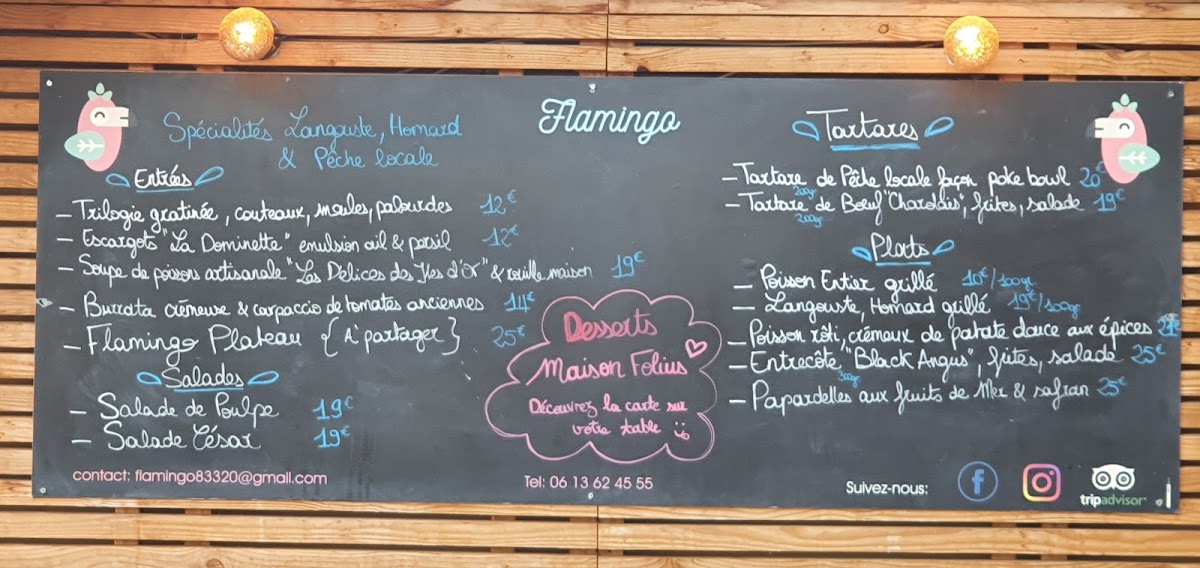 Flamingo
Spécialités Langouste, Homard
& Pêche locale
Entrées
- Trilogie gratinée, couteaux, moules, palourdes 12€
- Escargots "La Dominette" emulsion ail & persil 12€
- Soupe de poissons artisanale "Les Délices des Iles d'Or" & rouille maison 19€
- Burrata crémeuse & carpaccio de tomates anciennes 14€
- Flamingo Plateau {A partager} 25€
Salades
- Salade de Poulpe 19€
- Salade César 19€
Desserts
Maison Folius
Découvrez la carte sur
votre table
Tartares
- Tartare de Pêche locale façon poke bowl 20€
200gr
- Tartare de Bœuf "Charolais", frites, salade 19€
200gr
Plats
- Poisson Entier grillé 10€/100gr
- Langouste, Homard grillé 19€/100gr
- Poisson rôti, crémaux de patate douce aux épices
- Entrecôte "Black Angus", frites, salade 25€
300gr
- Papardelles aux fruits de Mer & safran 25€
contact: flamingo83320@gmail.com
Tel: 06 13 62 45 55
Suivez-nous:
tripadvisor